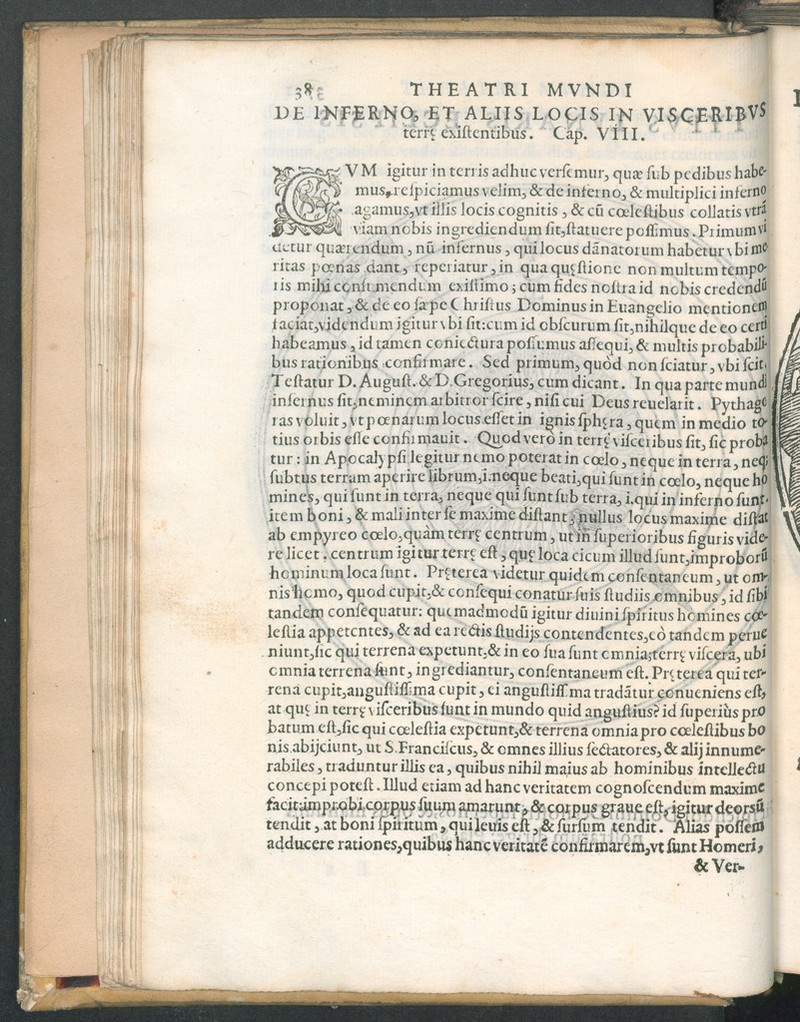 38 THEATRI MVNDI
DE INFERNO, ET ALIIS LOCIS IN VISCERIBVS
terrę exiſtentibus. Cap. VIII.
CVM igitur in terris adhuc verſemur, quæ ſub pedibus habe-
mus, reſpiciamus velim, & de inferno, & multiplici inferno
agamus, vt illis locis cognitis, & cũ cœleſtibus collatis vtrã
viam nobis ingrediendum ſit, ſtatuere poſſimus. Primum vi
detur quærendum, nũ infernus, qui locus dãnatorum habetur vbi me
ritas pœnas dant, reperiatur, in qua quęſtione non multum tempo-
ris mihi conſumendum exiſtimo; cum fides noſtra id nobis credendũ
proponat, & de eo ſæpe Chriſtus Dominus in Euangelio mentionem
faciat, videndum igitur vbi ſit: cum id obſcurum ſit, nihilque de eo certi
habeamus, id tamen coniectura poſſumus aſſequi, & multis probabili-
bus rationibus confirmare. Sed primum, quòd non ſciatur, vbi ſcit.
Teſtatur D. Auguſt. & D. Gregorius, cum dicant. In qua parte mundi
infernus ſit, neminem arbitror ſcire, niſi cui Deus reuelarit. Pythago
ras voluit, vt pœnarum locus eſſet in ignis ſphęra, quem in medio to-
tius orbis eſſe confirmauit. Quod verò in terrę viſceribus ſit, ſic proba
tur: in Apocalypſi legitur nemo poterat in cœlo, neque in terra, neq;
ſubtus terram aperire librum, i. neque beati, qui ſunt in cœlo, neque ho
mines, qui ſunt in terra, neque qui ſunt ſub terra, i. qui in inferno ſunt.
item boni, & mali inter ſe maxime diſtant; nullus locus maxime diſtat
ab empyreo cœlo, quàm terrę centrum, ut in ſuperioribus figuris vide-
re licet. centrum igitur terrę eſt, quę loca cicum illud ſunt, improborũ
hominum loca ſunt. Pręterea videtur quidem conſentaneum, ut om-
nis homo, quod cupit, & conſequi conatur ſuis ſtudiis omnibus, id ſibi
tandem conſequatur: quemadmodũ igitur diuini ſpiritus homines cœ-
leſtia appetentes, & ad ea rectis ſtudijs contendentes, eò tandem perue
niunt, ſic qui terrena expetunt, & in eo ſua ſunt omnia; terrę viſcera, ubi
omnia terrena ſunt, ingrediantur, conſentaneum eſt. Pręterea qui ter-
rena cupit, anguſtiſſima cupit, ei anguſtiſſima tradãtur conueniens eſt,
at quę in terrę viſceribus ſunt in mundo quid anguſtius? id ſuperiùs pro
batum eſt, ſic qui cœleſtia expetunt, & terrena omnia pro cœleſtibus bo
nis abijciunt, ut S. Franciſcus, & omnes illius ſectatores, & alij innume-
rabiles, traduntur illis ea, quibus nihil maius ab hominibus intellectu
concepi poteſt. Illud etiam ad hanc veritatem cognoſcendum maxime
facit: improbi corpus ſuum amarunt, & corpus graue eſt, igitur deorsũ
tendit, at boni ſpiritum, qui leuis eſt, & ſurſum tendit. Alias poſſem
adducere rationes, quibus hanc veritatẽ confirmarem, vt ſunt Homeri,
& Ver-